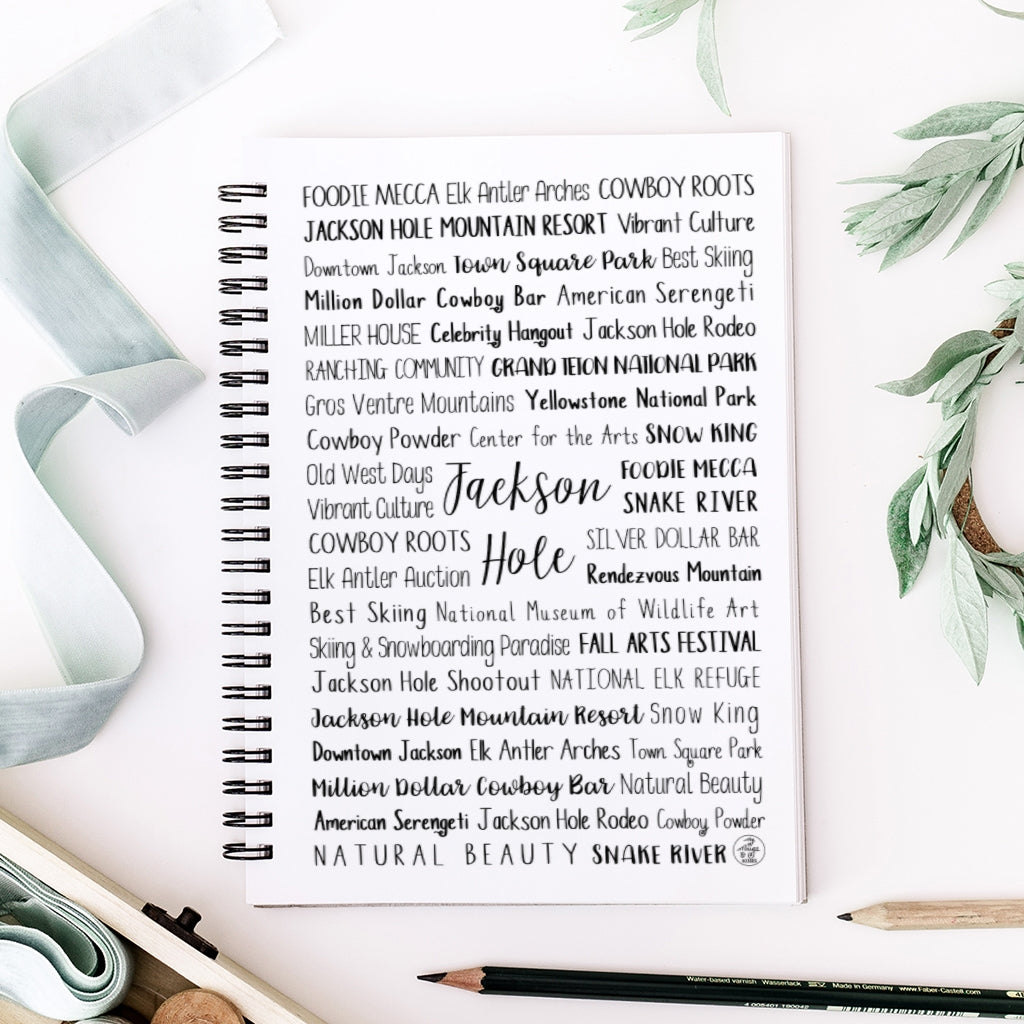 FOODIE MECCA Elk Antler Arches COWBOY ROOTS
JACKSON HOLE MOUNTAIN RESORT Vibrant Culture
Downtown Jackson Town Square Park Best Skiing
Million Dollar Cowboy Bar American Serengeti
MILLER HOUSE Celebrity Hangout Jackson Hole Rodeo
RANCHING COMMUNITY GRAND TETON NATIONAL PARK
Gros Ventre Mountains Yellowstone National Park
Cowboy Powder Center for the Arts SNOW KING
Old West Days
Vibrant Culture
Jackson
FOODIE MECCA
SNAKE RIVER
COWBOY ROOTS
Elk Antler Auction
Hole
SILVER DOLLAR BAR
Rendezvous Mountain
Best Skiing National Museum of Wildlife Art
Skiing & Snowboarding Paradise FALL ARTS FESTIVAL
Jackson Hole Shootout NATIONAL ELK REFUGE
Jackson Hole Mountain Resort Snow King
Downtown Jackson Elk Antler Arches Town Square Park
Million Dollar Cowboy Bar Natural Beauty
American Serengeti Jackson Hole Rodeo Cowboy Powder
NATURAL BEAUTY SNAKE RIVER
Water-based varnish Wasserlack Made in Germany www.Faber-Castell.com
4 005401 190042